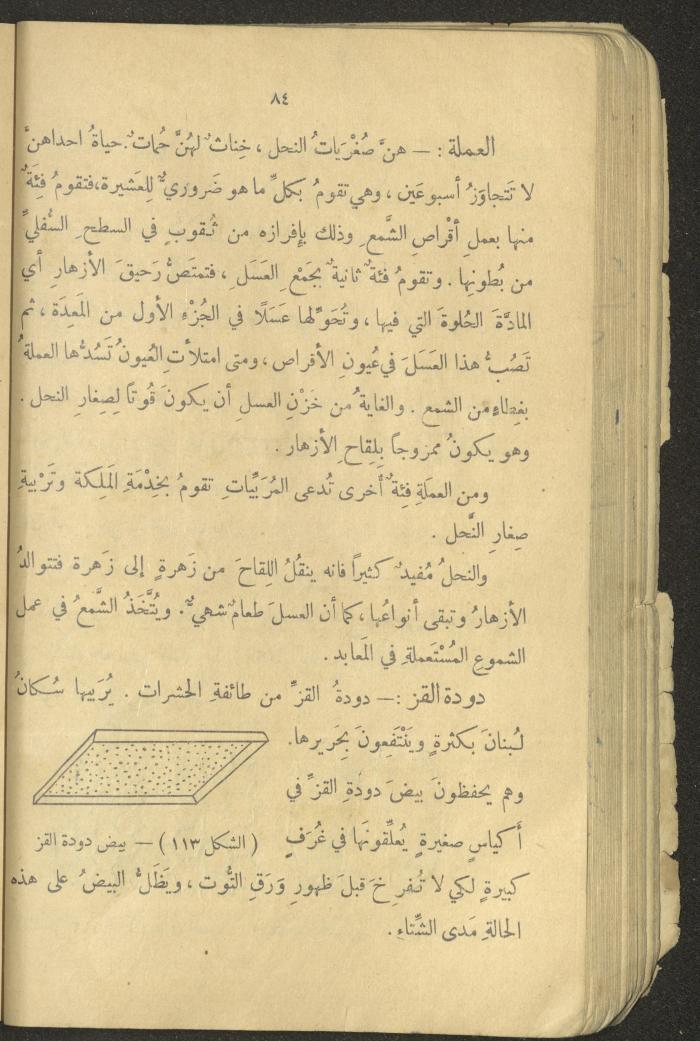 ٨٤
العملة : — هنَّ صُغْرَيَاتُ النحل ، خِناثٌ لهُنَّ حُمَاتٌ . حياةُ احداهنَّ
لا تَتجاوَزُ أسبوعَين ، وهي تقومُ بكلِّ ما هو ضَروريٌّ لِلعَشيرة ، فتقومُ فِئَةٌ
منها بعملِ أقْراصِ الشَّمعِ وذلك بإفرازه من ثُقوبٍ في السطحِ السُّفليِّ
من بُطونِها . وتقومُ فئةٌ ثانيةٌ بجَمْعِ العَسَلِ ، فتمتَصُّ رَحيقَ الأزهارِ أي
المادَّةَ الحُلوةَ التي فيها ، وتُحَوِّلها عَسَلًا في الجُزْءِ الأول من المَعِدَة ، ثم
تَصُبُّ هذا العَسَلَ في عُيونِ الأقراص ، ومتى امتلأتِ العُيونُ تَسُدُّها العملةُ
بغِطاءٍ من الشمع . والغايةُ من خَزْنِ العسلِ أن يكونَ قُوتاً لِصِغارِ النحل .
وهو يكونُ ممزوجاً بِلِقاحِ الأزهار .
ومن العمَلةِ فِئةٌ أُخرى تُدعى المُرَبِّياتِ تقومُ بخِدْمَةِ المَلِكة وتَرْبيةِ
صِغارِ النَّحل .
والنحلُ مُفيدٌ كثيراً فانه ينقُلُ اللِقاحَ من زَهرةٍ إلى زَهرة فتتوالدُ
الأزهارُ وتبقى أنواعُها ، كما أن العسلَ طعامٌ شهيٌّ . ويُتَّخَذُ الشَّمعُ في عمل
الشموعِ المُسْتَعملةِ في المَعابد .
دودة القز : — دودةُ القزِّ من طائفةِ الحشرات . يُرَبيها سُكانُ
لُبنانَ بكثرةٍ ويَنْتَفِعونَ بِحَريرها .
وهم يحفظونَ بيضَ دودَةِ القزِّ في
أكياسٍ صغيرةٍ يُعلِّقونَها في غُرَفٍ
( الشكل ١١٣ ) — بيض دودة القز
كبيرةٍ لكي لا تُفرِخَ قبلَ ظهورِ وَرَقِ التُّوت ، ويَظَلُّ البيضُ على هذه
الحالةِ مَدى الشِّتاءِ .